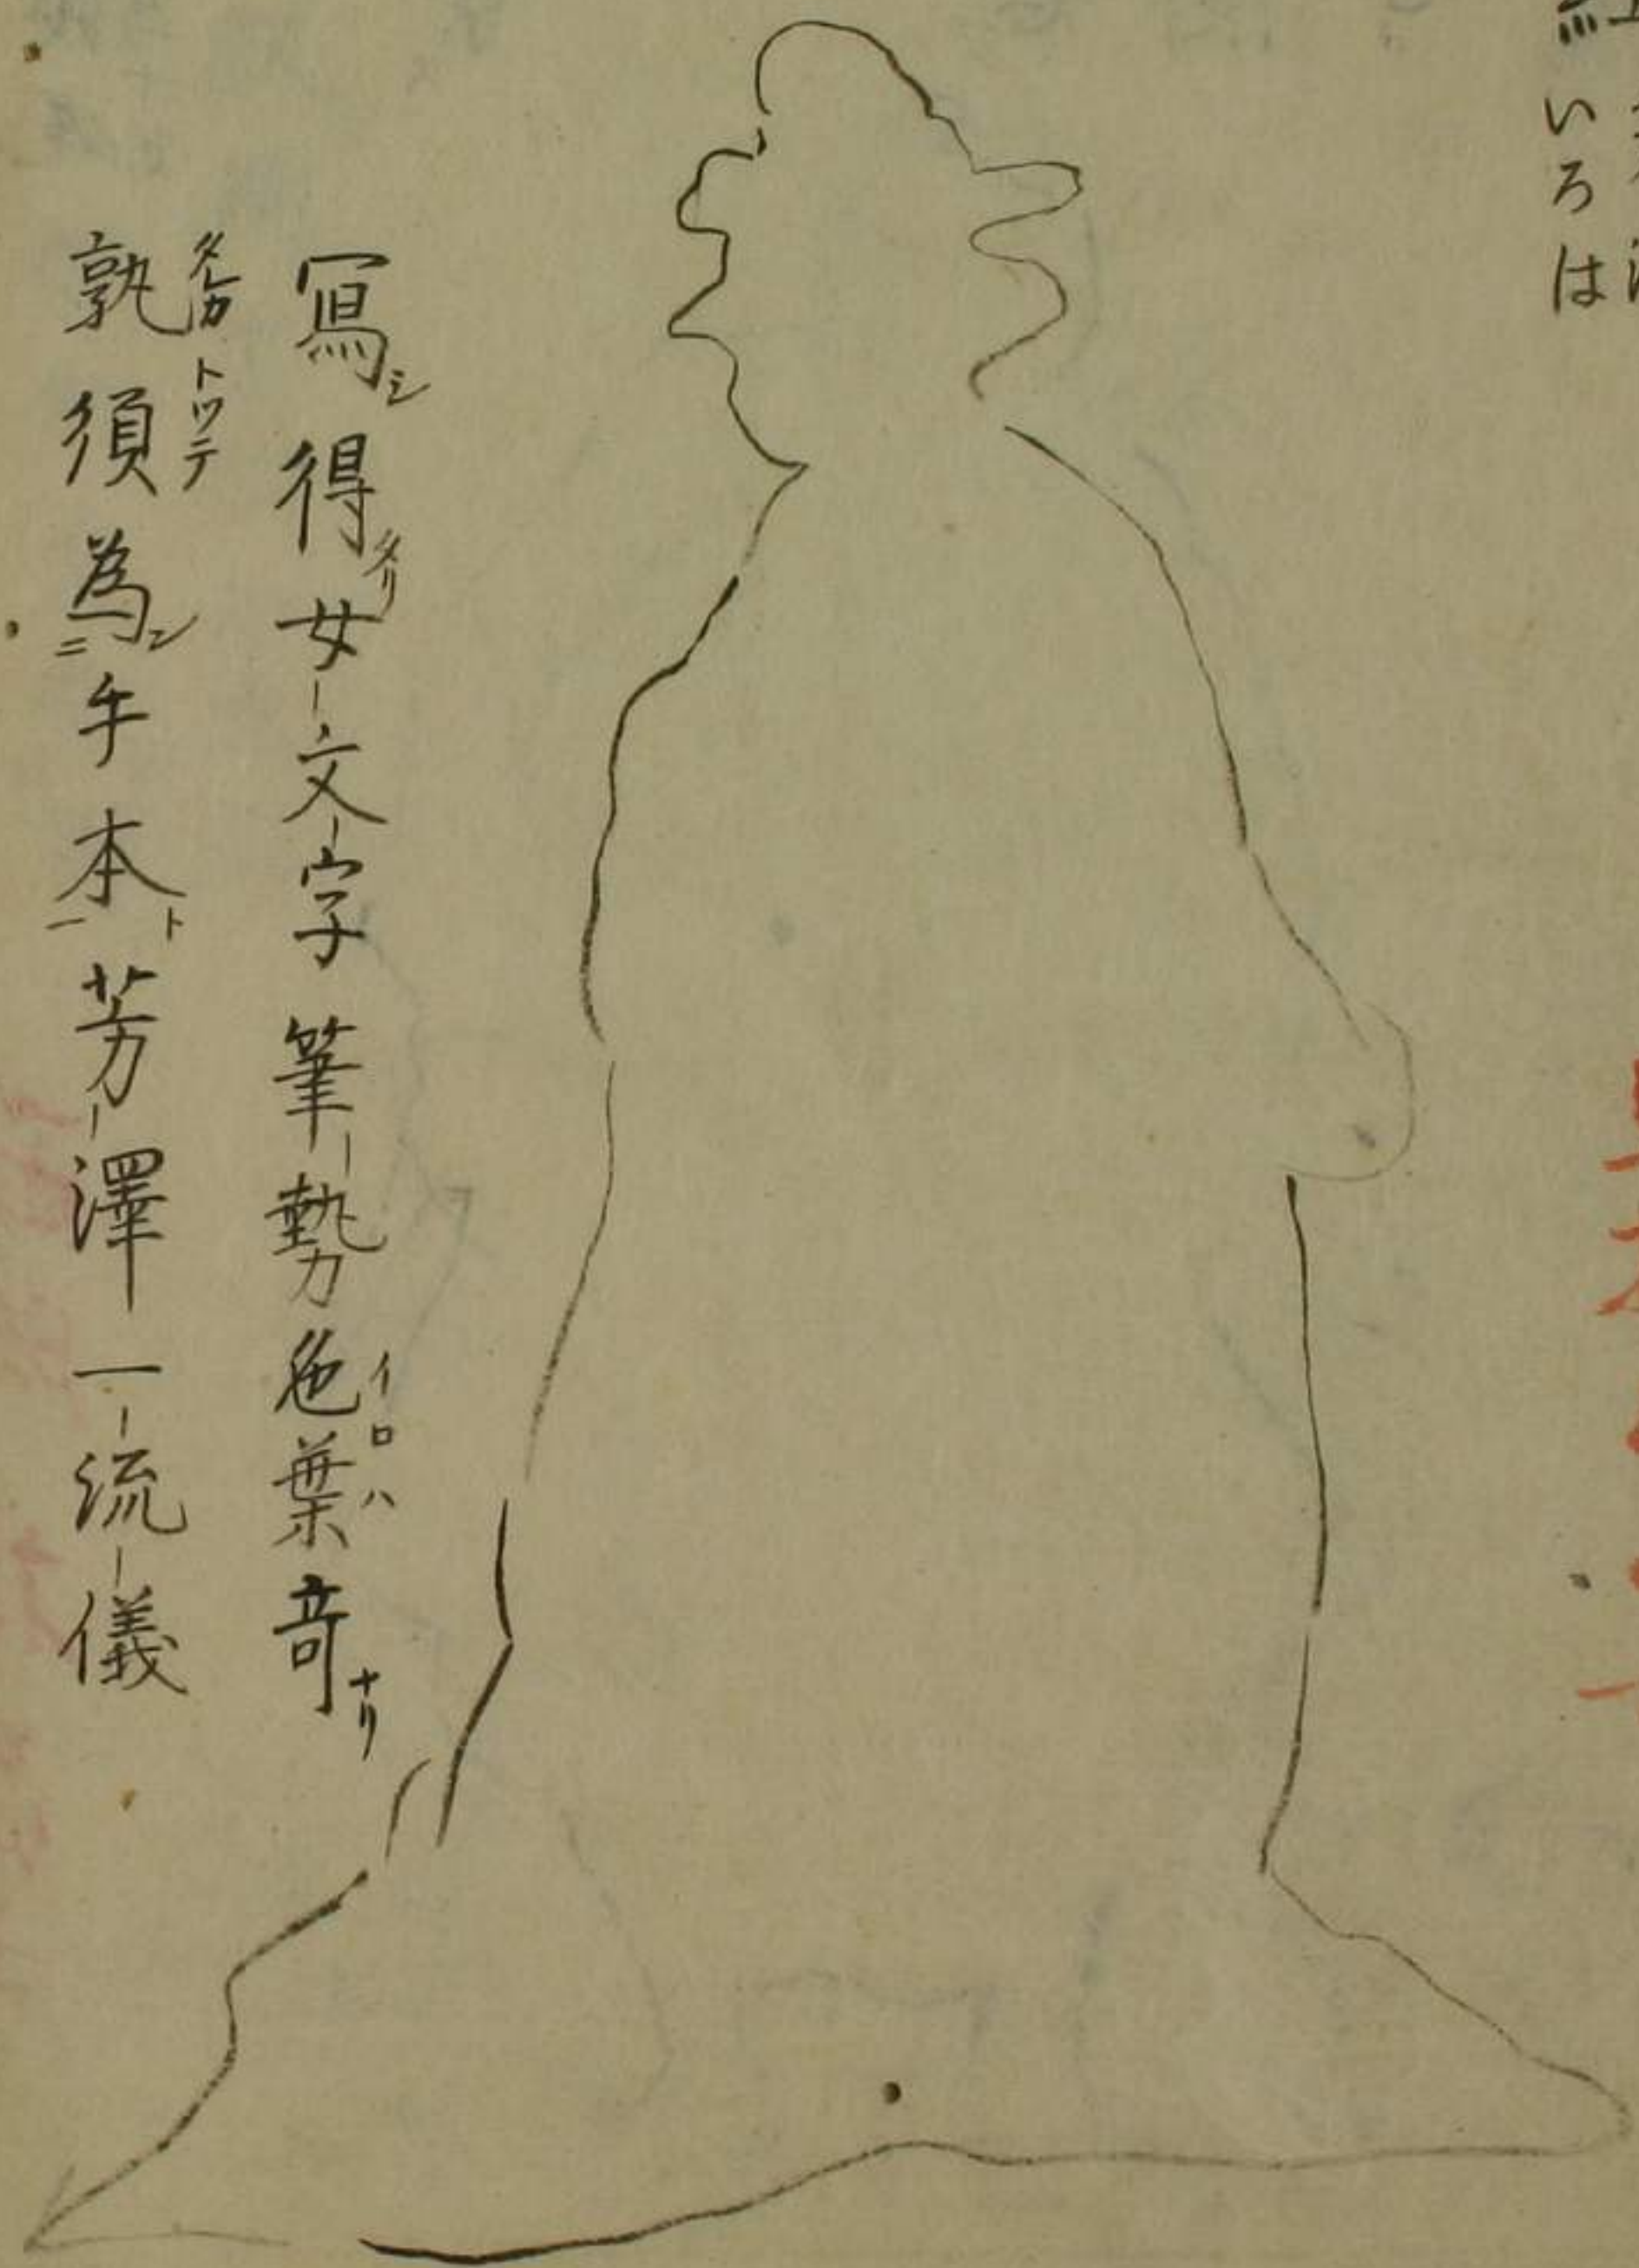 いろは
寫シ得タリ女文字筆勢色葉イロハ奇ナリ
孰タレカ須トツテ為シ二手本ト一芳澤一流儀